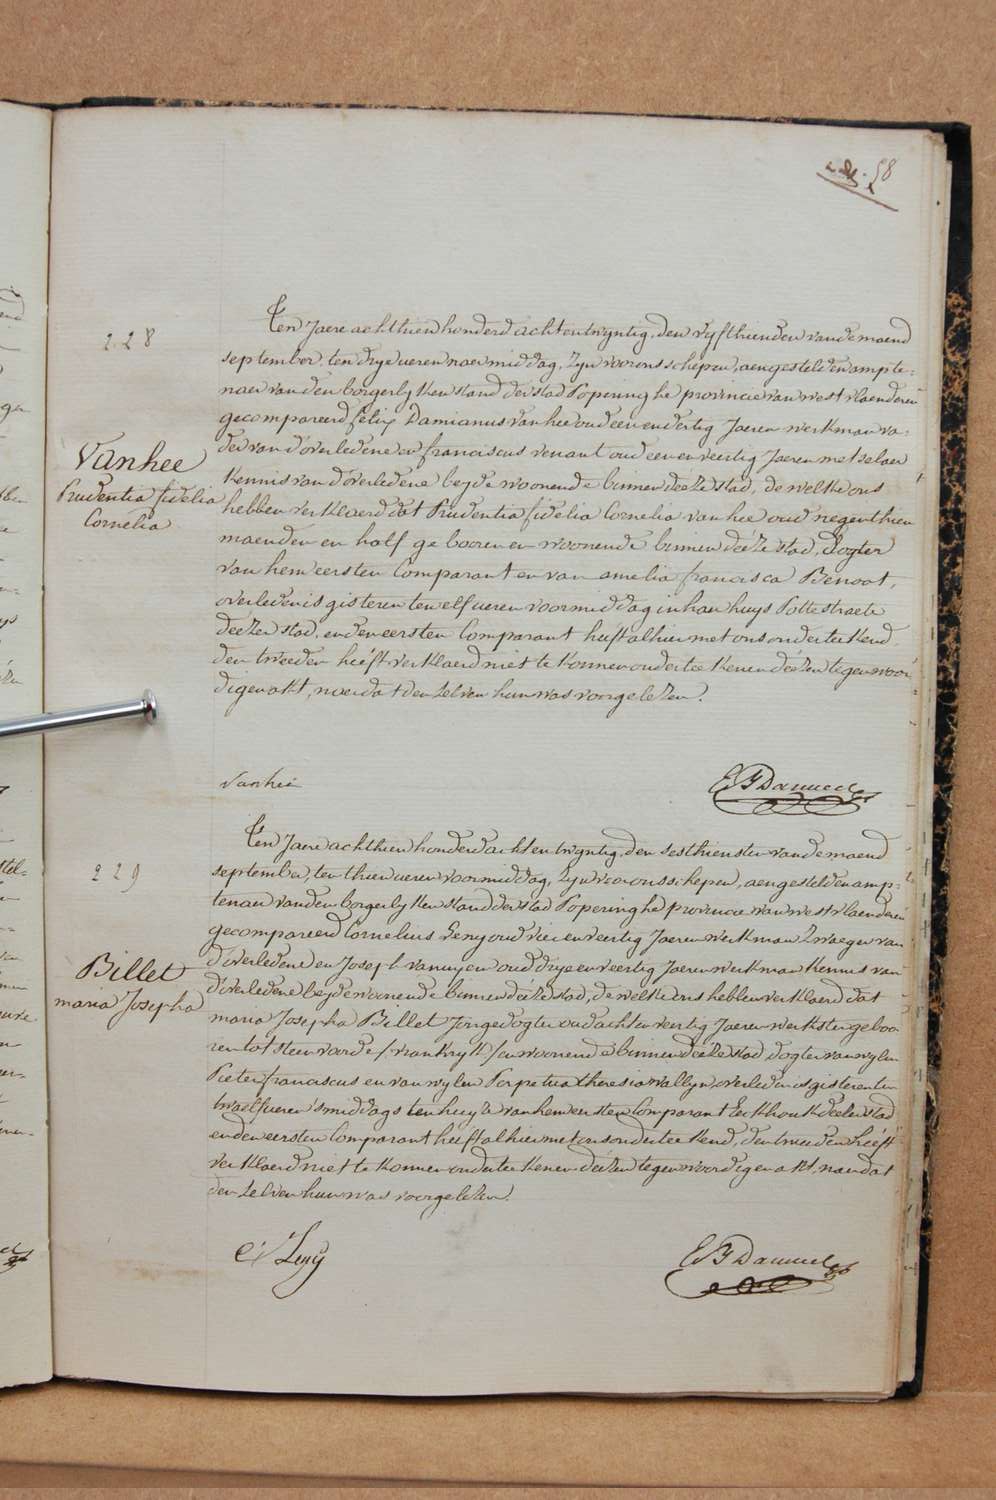 58
228
Vanhee
Prudentia fidelia
Cornelia
Ten Jaere achthien honderd achtentwyntig, den vyfthienden van de maend
september, ten drye ueren naer middag, zyn voor ons schepen, aengestelden ampte-
naer van den borgerlyken stand der stad Poperinghe provincie van west vlaenderen
gecompareerd felix Damianus vanhee oud eenendertig Jaeren werkman va-
der van d'overledene en franciscus venant oud eenenveertig Jaeren metselaer
kennis van d'overledene beyde woonende binnen deeze stad, de welke ons
hebben verklaerd dat Prudentia fidelia Cornelia vanhee oud negenthien
maenden en half gebooren en woonende binnen deeze stad, dogter
van hem eersten Comparant en van amelia francisca Benoot,
overleden is gisteren ten elf ueren voormiddag in haer huys Pottestraete
deezer stad, en den eersten Comparant heeft alhier met ons onderteekend
den tweeden heeft verklaerd niet te konnen onderteekenen deezen tegenwoor-
digen akt, naer dat den zelven hun was voorgelezen.
Vanhee
229
Billet
maria Josepha
Ten Jaere achthien honderd achtentwyntig, den sesthiensten van de maend
september, ten thien ueren voormiddag, zyn voor ons schepen, aengestelden amp-
tenaer van den borgerlyken stand der stad Poperinghe provincie van west vlaenderen
gecompareerd Cornelius Leny oud vierenveertig Jaeren werkman Zwaeger van
d'overledene en Joseph vanuyen oud dryeenveertig Jaeren werkman kennis van
d'overledene beyde woonende binnen deeze stad, de welke ons hebben verklaerd dat
maria Josepha Billet Jongedogter oud achtenveertig Jaeren werkster geboo-
ren tot steenvoorde /vrankryk/ en woonende binnen deeze stad dogter van wylen
Pieter franciscus en van wylen Perpetua theresia wallyn, overleden is gisteren ten
twaelf ueren 'smiddags ten huyze van hem eersten Comparant Eekhoutk deezer stad
en den eersten Comparant heeft alhier met ons onderteekend, den tweeden heeft
verklaerd niet te konnen onderteekenen deezen tegenwoordigen akt, naer dat
den zelven hun was voorgelezen.